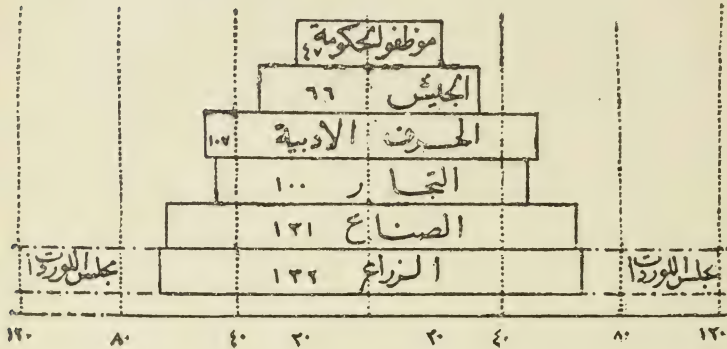 موظفو الحكومة ٤٧
الجيش ٦٦
الحرف الادبية ١٠٧
التجار ١٠٠
الصناع ١٣١
مجلس اللوردات الزراع ١٣٢ مجلس اللوردات
١٢٠ ٨٠ ٤٠ ٢٠ ٢٠ ٤٠ ٨٠ ١٢٠